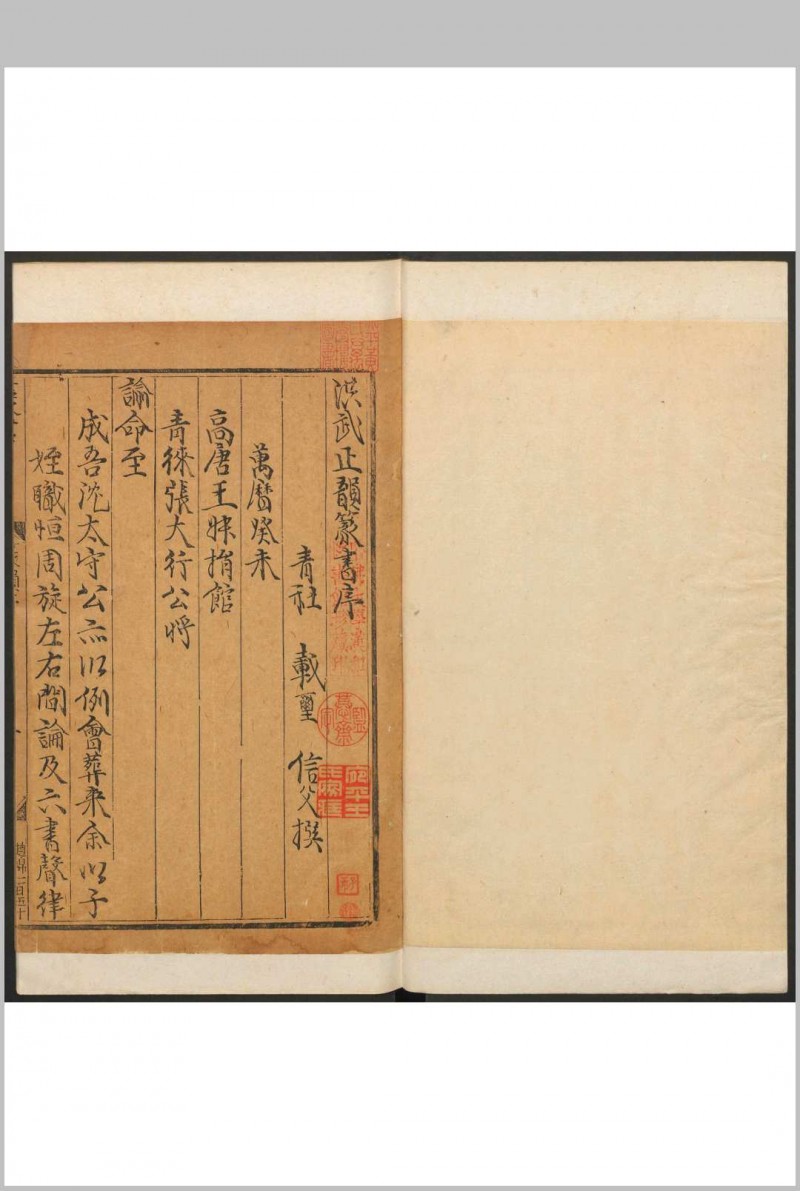 洪武正韻篆書序
青社 載璽 信父撰
萬曆癸未
高唐王妹捐館
青徠張大行公將
諭命至
成吾沈太守公亦以例會葬來余以子
姪職恒周旋左右間論及六書聲律